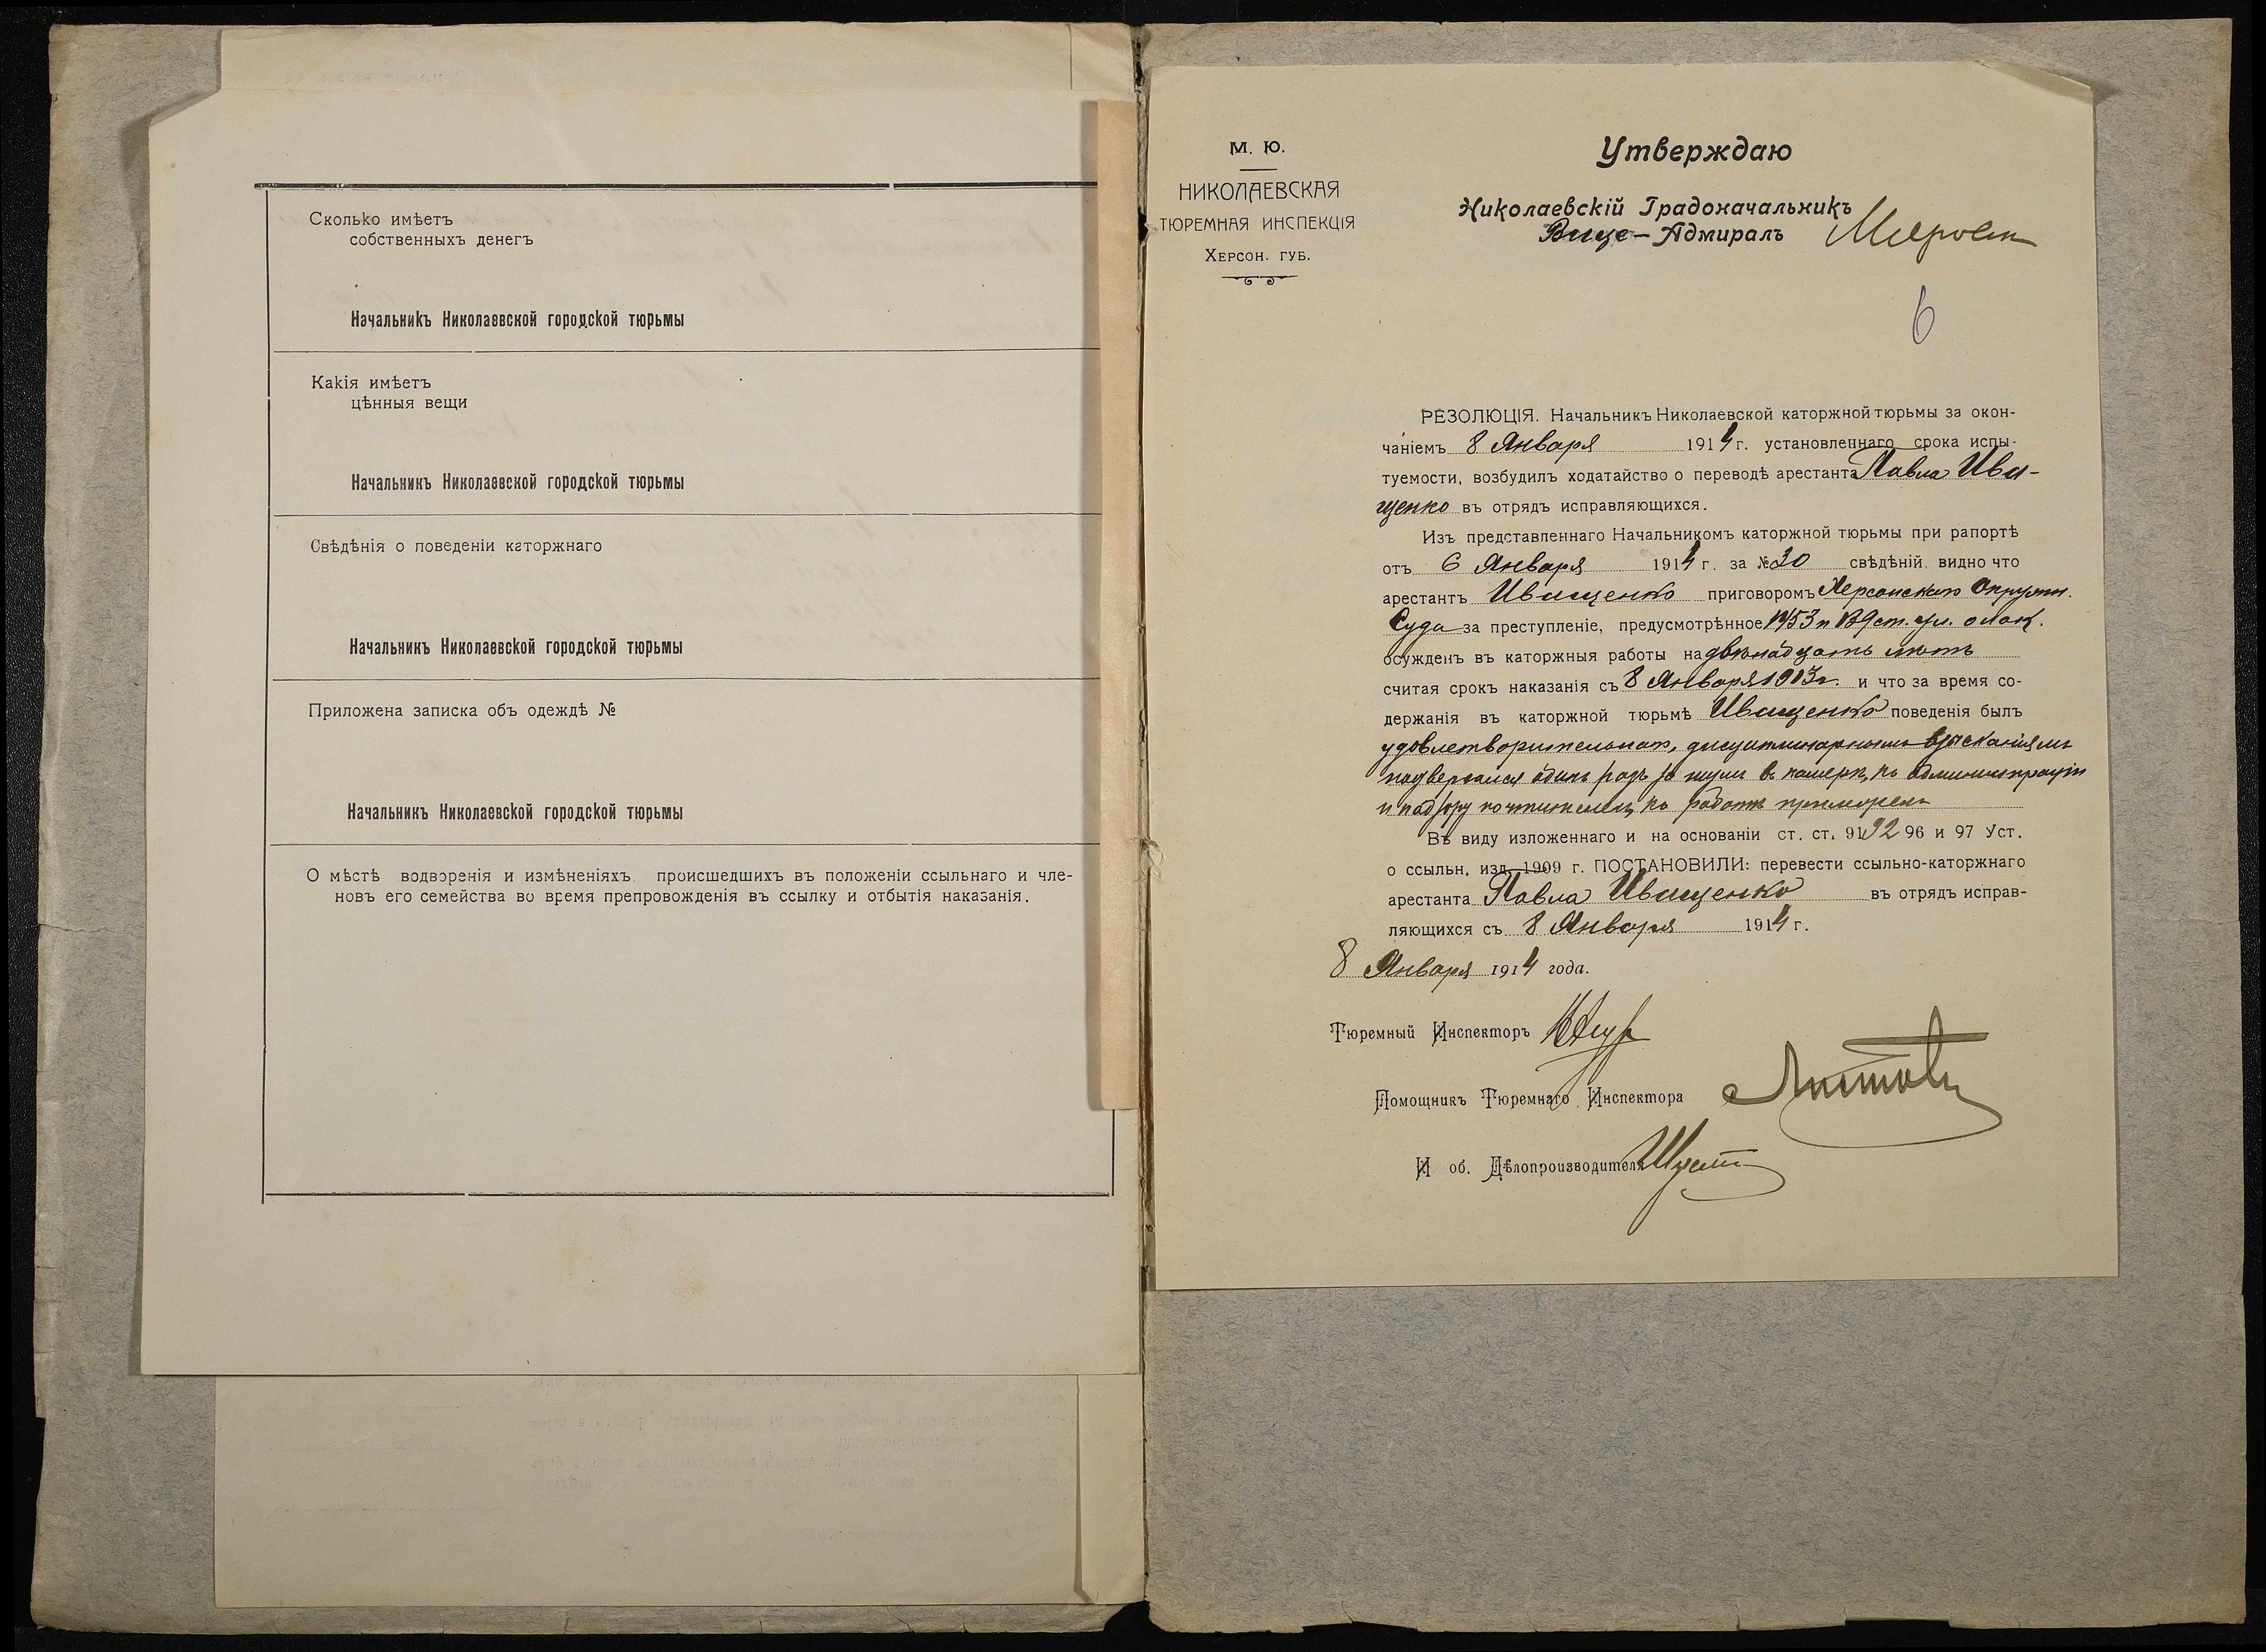 Сколько имѣетъ
собственныхъ денегъ
Начальникъ Николаевской городской тюрьмы
Какія имѣетъ
цѣнныя вещи
Начальникъ Николаевской городской тюрьмы
Свѣдѣнія о поведеніи каторжнаго
Начальникъ Николаевской городской тюрьмы
Приложена записка объ одеждѣ №
Начальникъ Николаевской городской тюрьмы
О мѣстѣ водворенія и измѣненіяхъ происшедшихъ въ положеніи ссыльнаго и чле-
новъ его семейства во время препровожденія въ ссылку и отбытія наказанія.
М. Ю.
НИКОЛАЕВСКАЯ
ТЮРЕМНАЯ ИНСПЕКЦІЯ
ХЕРСОН. ГУБ.
Утверждаю
Николаевскій Градоначальникъ
Вице-Адмиралъ
6
РЕЗОЛЮЦІЯ. Начальникъ Николаевской каторжной тюрьмы за окон-
чаніемъ 8 Января 1914 г. установленнаго срока испы-
туемости, возбудилъ ходатайство о переводѣ арестанта Павла Ива-
щенко въ отрядъ исправляющихся.
Изъ представленнаго Начальникомъ каторжной тюрьмы при рапортѣ
отъ 6 Января 1914 г. за № 30 свѣдѣній видно что
арестантъ Иващенко приговоромъ Херсонскаго Окружн.
Суда за преступленіе, предусмотрѣнное 1453 и 139 ст. ул. о нак.
осужденъ въ каторжныя работы на двѣнадцать лѣтъ
считая срокъ наказанія съ 8 Января 1913 г. и что за время со-
держанія въ каторжной тюрьмѣ Иващенко поведенія былъ
удовлетворительнаго, дисциплинарнымъ взысканіямъ
подвергался одинъ разъ за шумъ въ камерѣ, къ администраціи
и надзору почтителенъ, къ работѣ прилеженъ
Въ виду изложеннаго и на основаніи ст. ст. 91 92 96 и 97 Уст.
о ссыльн, изд. 1909 г. ПОСТАНОВИЛИ: перевести ссыльно-каторжнаго
арестанта Павла Иващенко въ отрядъ исправ-
ляющихся съ 8 Января 1914 г.
8 Января 1914 года.
Тюремный Инспекторъ
Помощникъ Тюремнаго Инспектора
И об. Дѣлопроизводителя